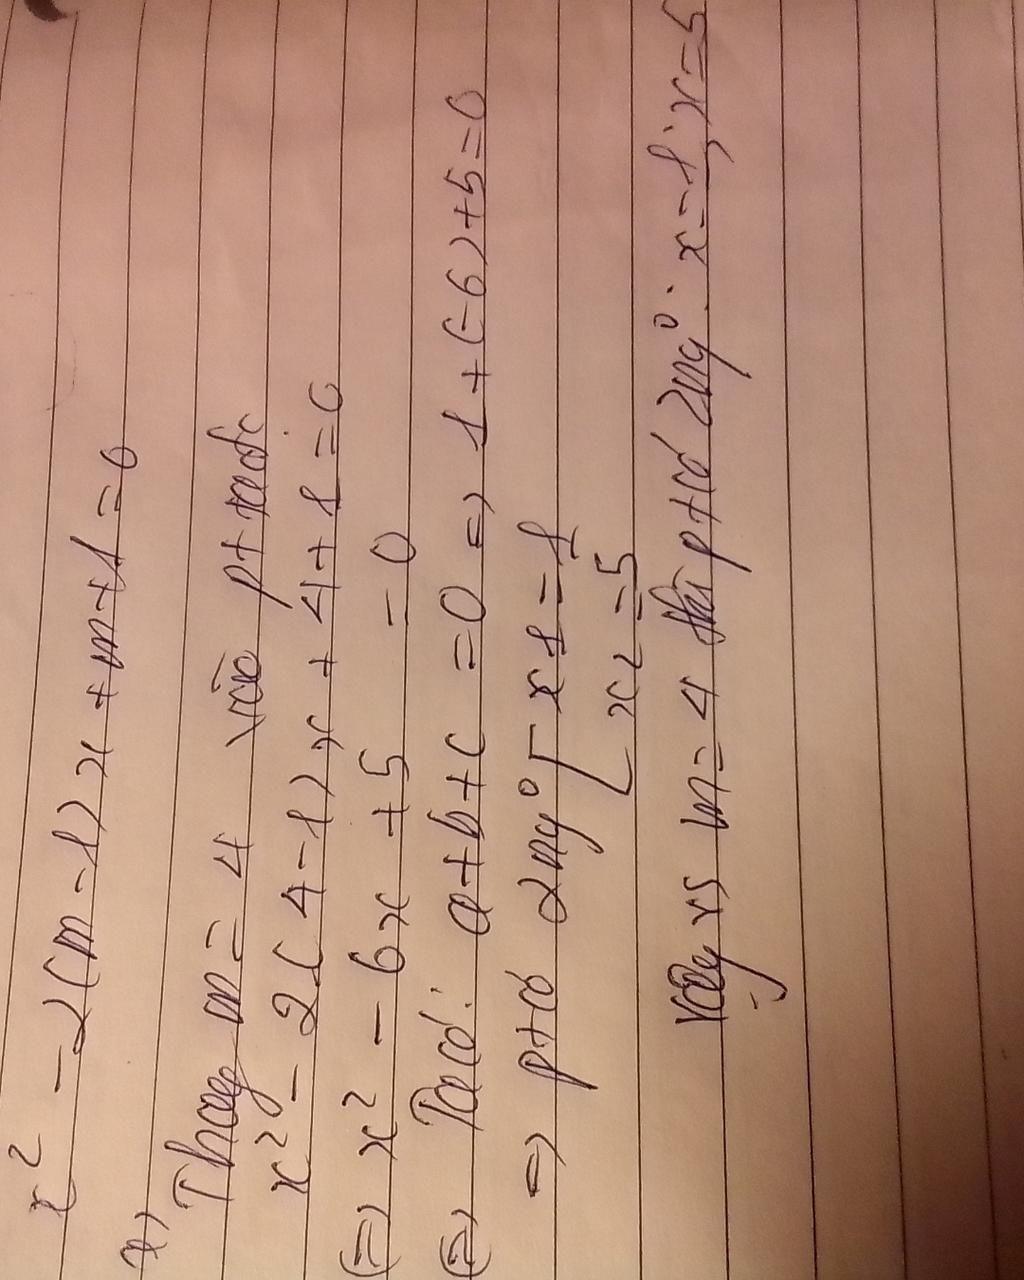 x² - 2(m-1)x + m+1 = 0
a)
Thay m = 4 vào pt ta đc
x² - 2(4-1)x + 4+1 = 0
(=) x² - 6x + 5 = 0
(=) Ta có: a+b+c = 0 => 1 + (-6)+5 = 0
=> pt có 2 ng⁰ [ x1 = 1
x2 = 5
Vậy vs m = 4 thì pt có 2 ng⁰: x = 1; x = 5